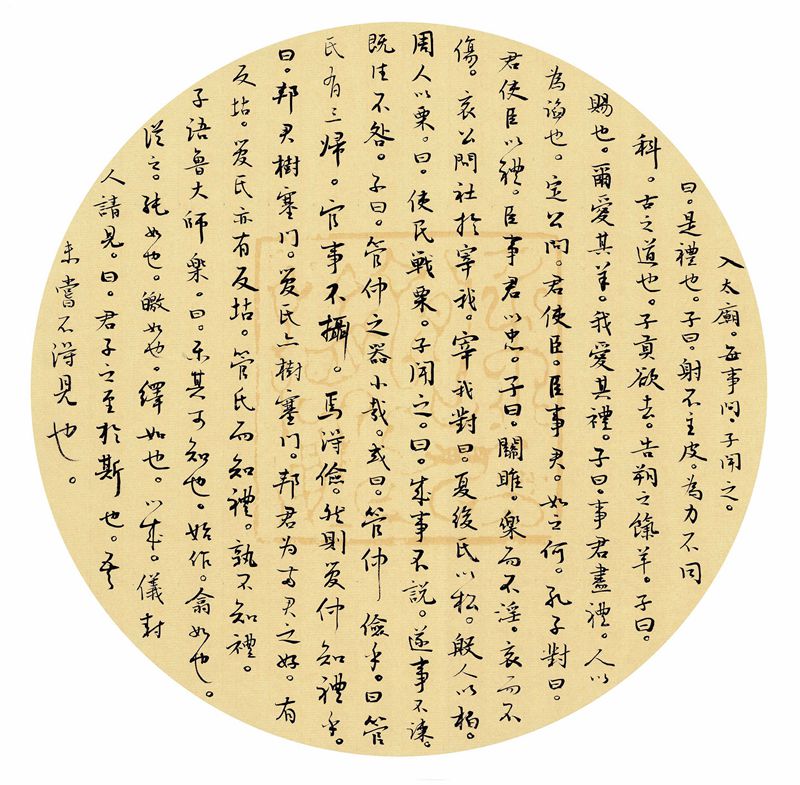 入太廟。每事問。子聞之。
曰。是禮也。子曰。射不主皮。為力不同
科。古之道也。子貢欲去。告朔之餼羊。子曰。
賜也。爾愛其羊。我愛其禮。子曰。事君盡禮。人以
為諂也。定公問。君使臣。臣事君。如之何。孔子對曰。
君使臣以禮。臣事君以忠。子曰。關雎。樂而不淫。哀而不
傷。哀公問社於宰我。宰我對曰。夏後氏以松。殷人以柏。
周人以栗。曰。使民戰栗。子聞之。曰。成事不說。遂事不諫。
既往不咎。子曰。管仲之器小哉。或曰。管仲儉乎。曰管
氏有三歸。官事不攝。焉得儉。然則管仲知禮乎。
曰。邦君樹塞門。管氏亦樹塞門。邦君為兩君之好。有
反坫。管氏亦有反坫。管氏而知禮。孰不知禮。
子語魯大師樂。曰。樂其可知也。始作。翕如也。
從之。純如也。皦如也。繹如也。以成。儀封
人請見。曰。君子之至於斯也。吾
未嘗不得見也。